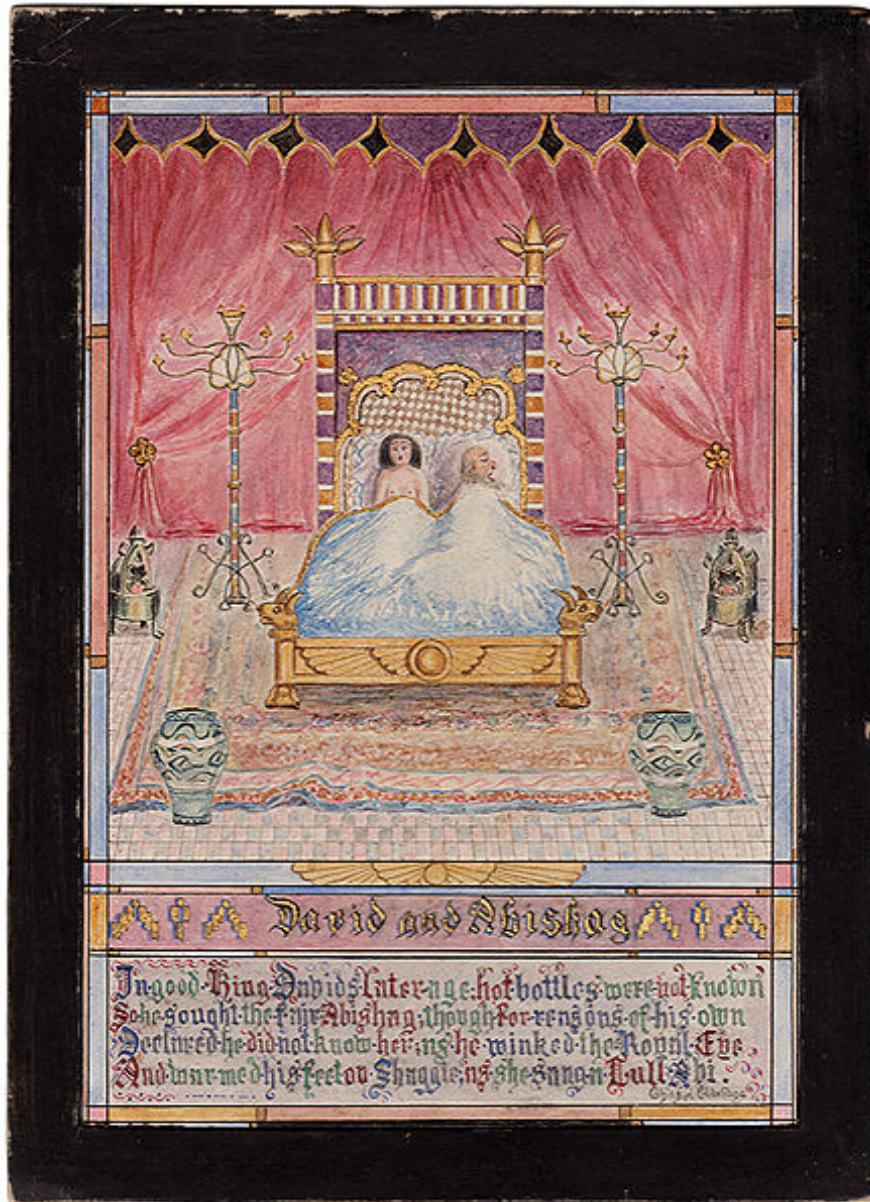 David and Abishag
In·good·King·Davids·Later·age·hot·bottles·were·not·known
So·he·sought·the·fair·Abishag,·though·for·reasons·of·his·own
Declared·he·did·not·know·her;·as·he·winked·the·Royal·Eye
And·warmed·his·feet·on·Shaggie,·as·she·sang·a·Lull·Abi.